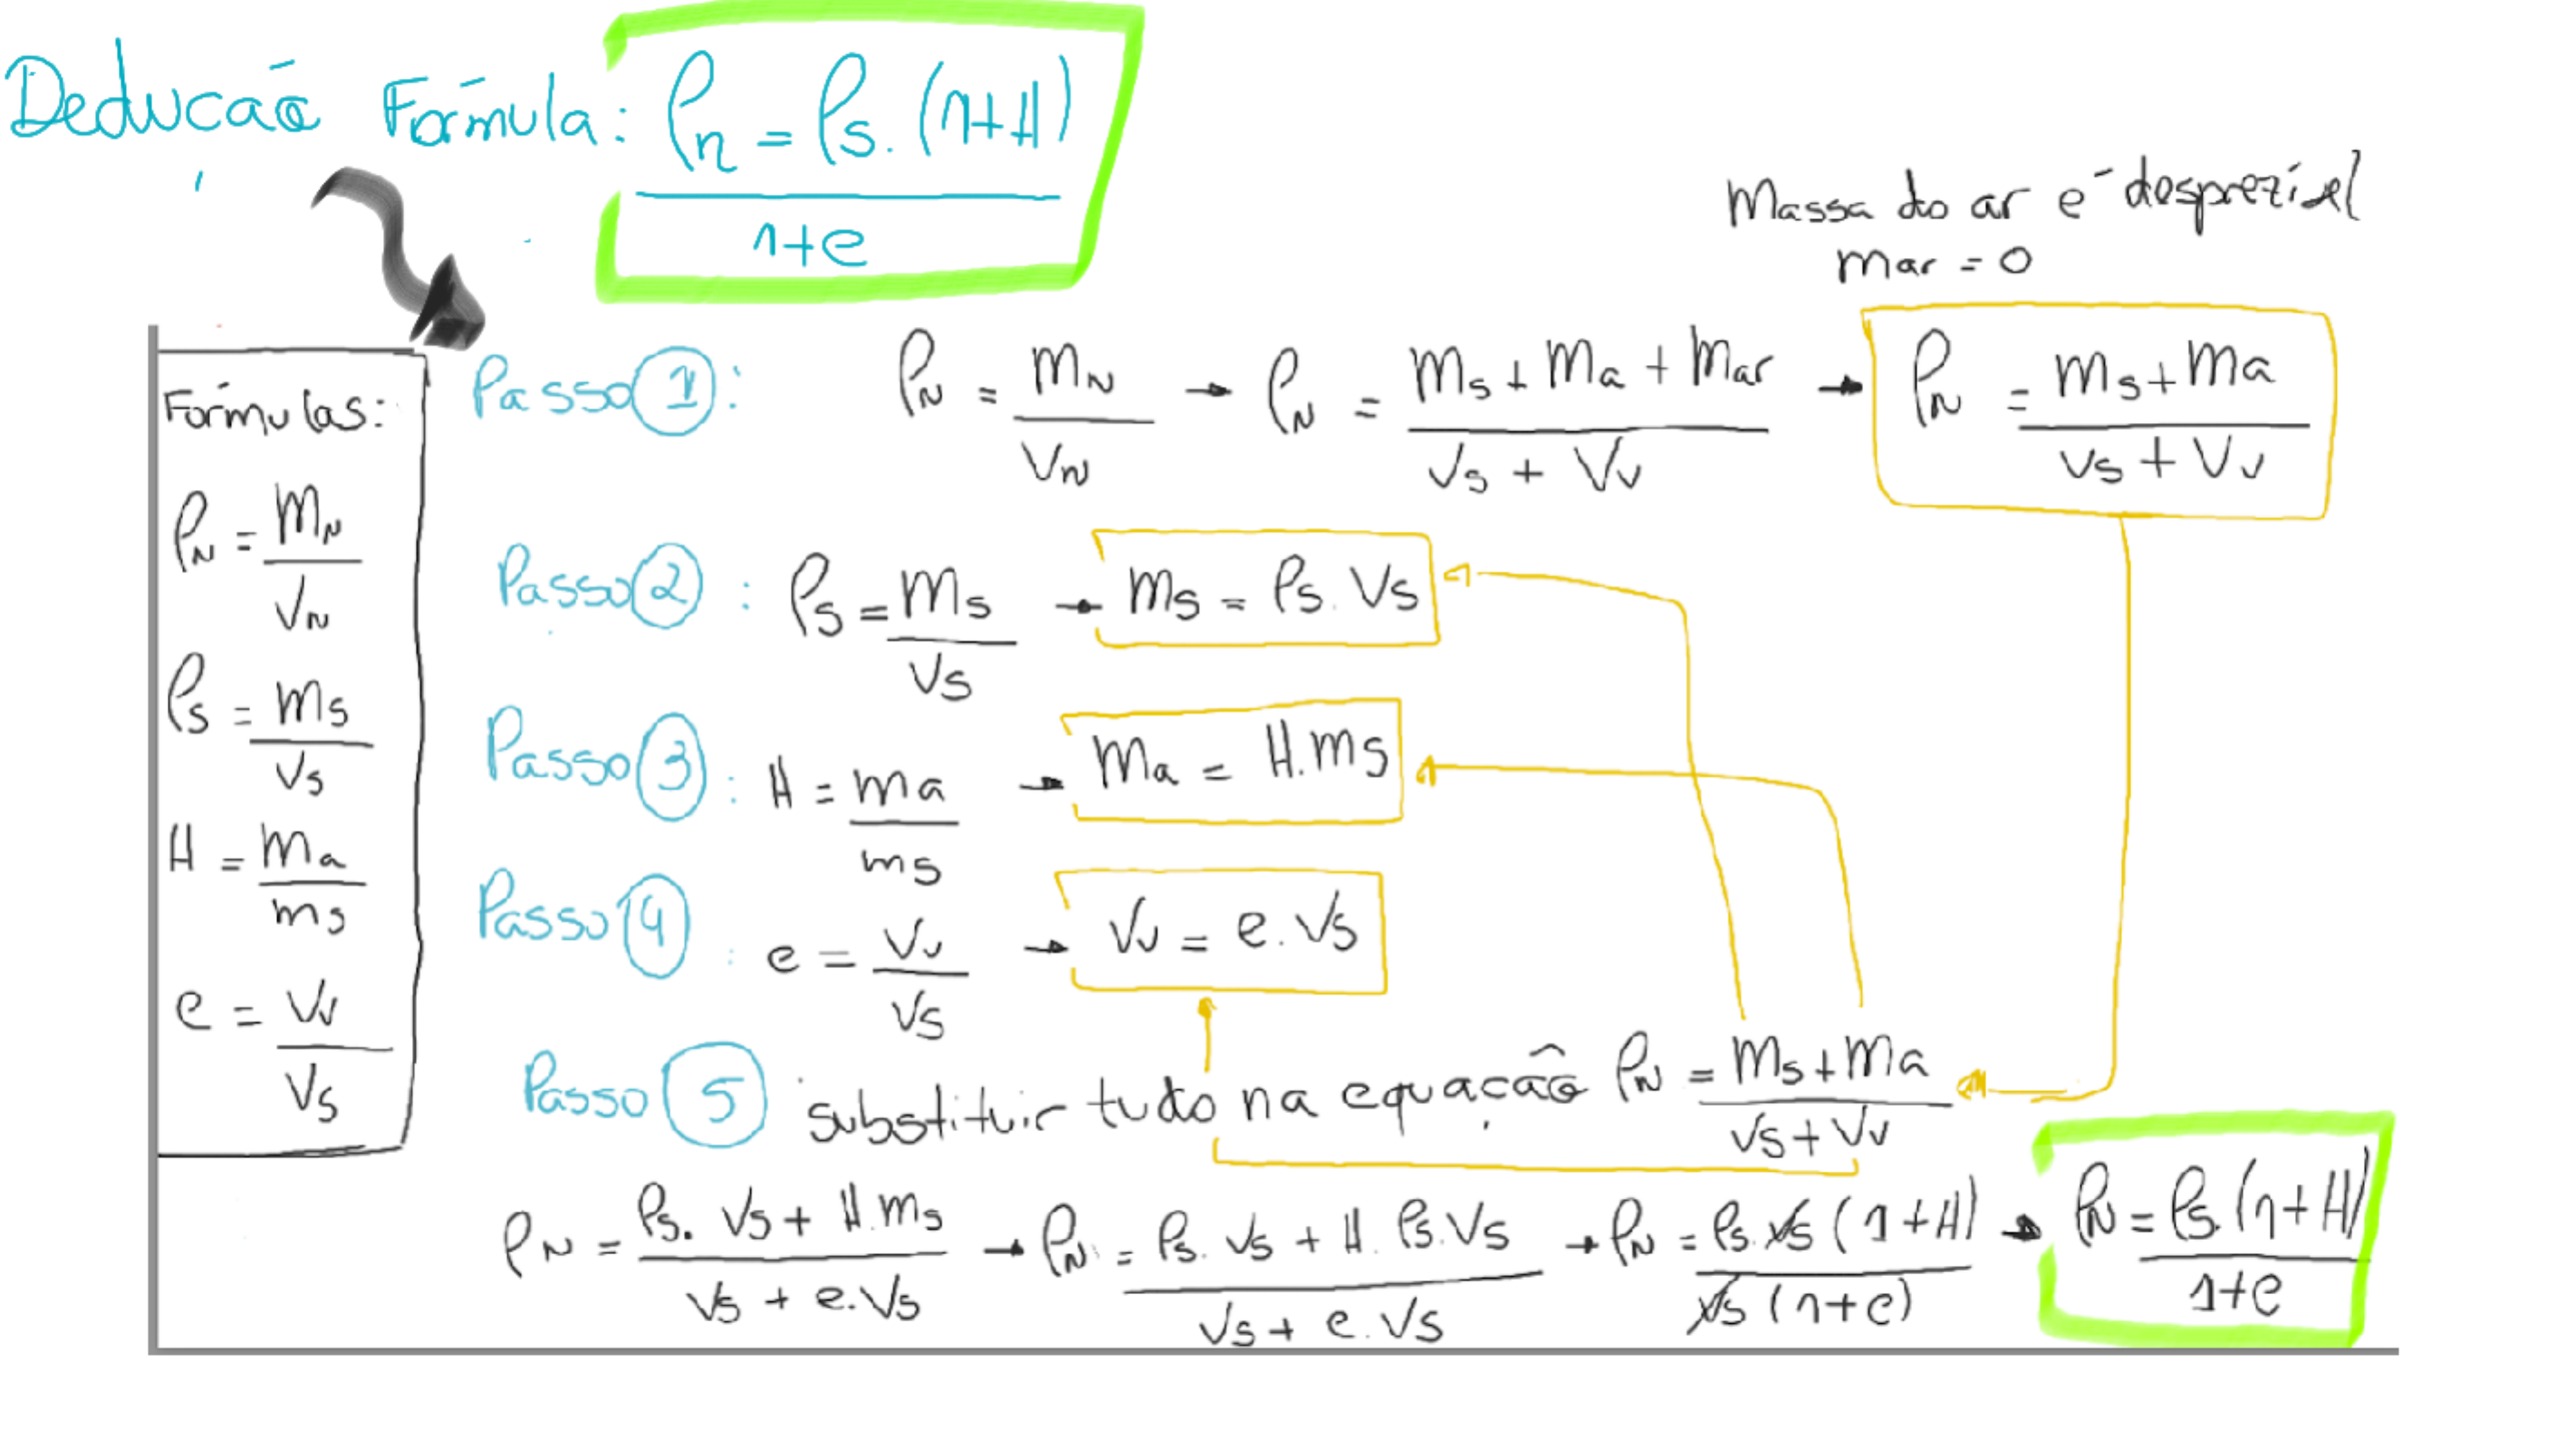 Dedução Fórmula: ρn = ρs.(1+H) / 1+e
Massa do ar é desprezível
mar = 0
Fórmulas:
ρN = mN / VN
ρs = ms / Vs
H = ma / ms
e = Vv / Vs
Passo 1: ρN = mN / VN → ρN = ms + ma + mar / Vs + Vv → ρN = ms + ma / Vs + Vv
Passo 2: ρs = ms / Vs → ms = ρs. Vs
Passo 3: H = ma / ms → ma = H.ms
Passo 4: e = Vv / Vs → Vv = e.Vs
Passo 5 substituir tudo na equação ρN = ms + ma / Vs + Vv
ρN = ρs. Vs + H.ms / Vs + e.Vs → ρN = ρs. Vs + H. ρs.Vs / Vs + e.Vs → ρN = ρs.Vs (1+H) / Vs (1+e) → ρN = ρs.(1+H) / 1+e